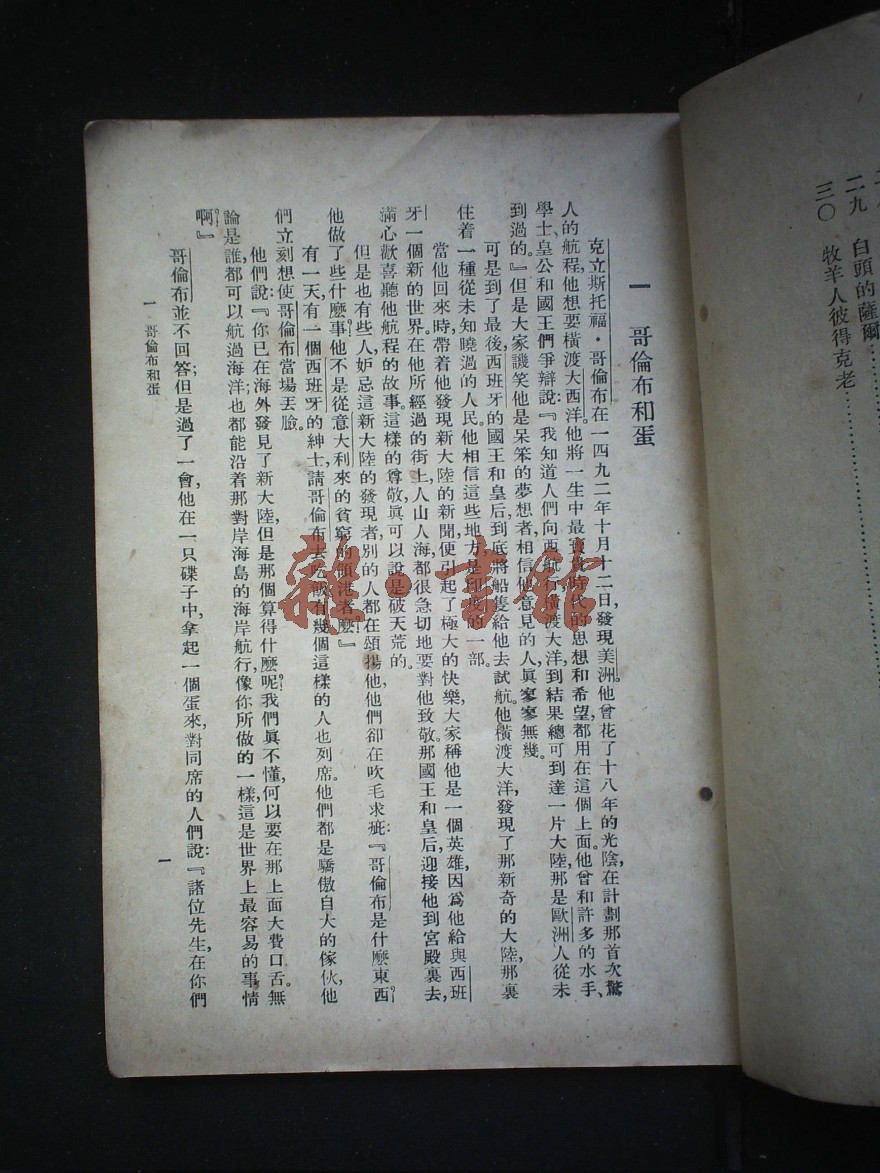 二九　白頭的薩爾…………
三〇　牧羊人彼得克老…………
一　哥倫布和蛋
克立斯托福・哥倫布在一四九二年十月十二日，發現美洲。他曾花了十八年的光陰，在計劃那首次驚
人的航程，他想要橫渡大西洋。他將一生中最寶貴時代的思想和希望，都用在這個上面。他曾和許多的水手、
學士、皇公和國王們爭辯說：『我知道人們向西航行，橫渡大洋，到結果總可到達一片大陸，那是歐洲人從未
到過的。』但是大家譏笑他是呆笨的夢想者，相信他意見的人，眞寥寥無幾。
可是到了最後，西班牙的國王和皇后，到底將船隻給他去試航。他橫渡大洋，發現了那新奇的大陸，那裏
住着一種從未知曉過的人民。他相信這些地方是印度的一部。
當他回來時，帶着他發現新大陸的新聞，便引起了極大的快樂，大家稱他是一個英雄，因爲他給與西班
牙一個新的世界。在他所經過的街上，人山人海，都很急切地要對他致敬。那國王和皇后，迎接他到宮殿裏去，
滿心歡喜聽他航程的故事。這樣的尊敬，眞可以說是破天荒的。
但是也有些人，妒忌這新大陸的發現者，別的人都在頌揚他，他們卻在吹毛求疵：『哥倫布是什麼東西？
他做了些什麼事？他不是從意大利來的貧窮的領港者麼？』
有一天，有一個西班牙的紳士，請哥倫布去吃飯，有幾個這樣的人也列席。他們都是驕傲自大的傢伙，他
們立刻想使哥倫布當場丟臉。
他們說：『你已在海外發見了新大陸，但是那個算得什麼呢？我們眞不懂，何以要在那上面大費口舌。無
論是誰，都可以航過海洋；也都能沿着那對岸海島的海岸航行，像你所做的一樣，這是世界上最容易的事情
啊！』
哥倫布並不回答，但是過了一會，他在一只碟子中，拿起一個蛋來，對同席的人們說：『諸位先生，在你們
一　哥倫布和蛋
一
雜・书馆